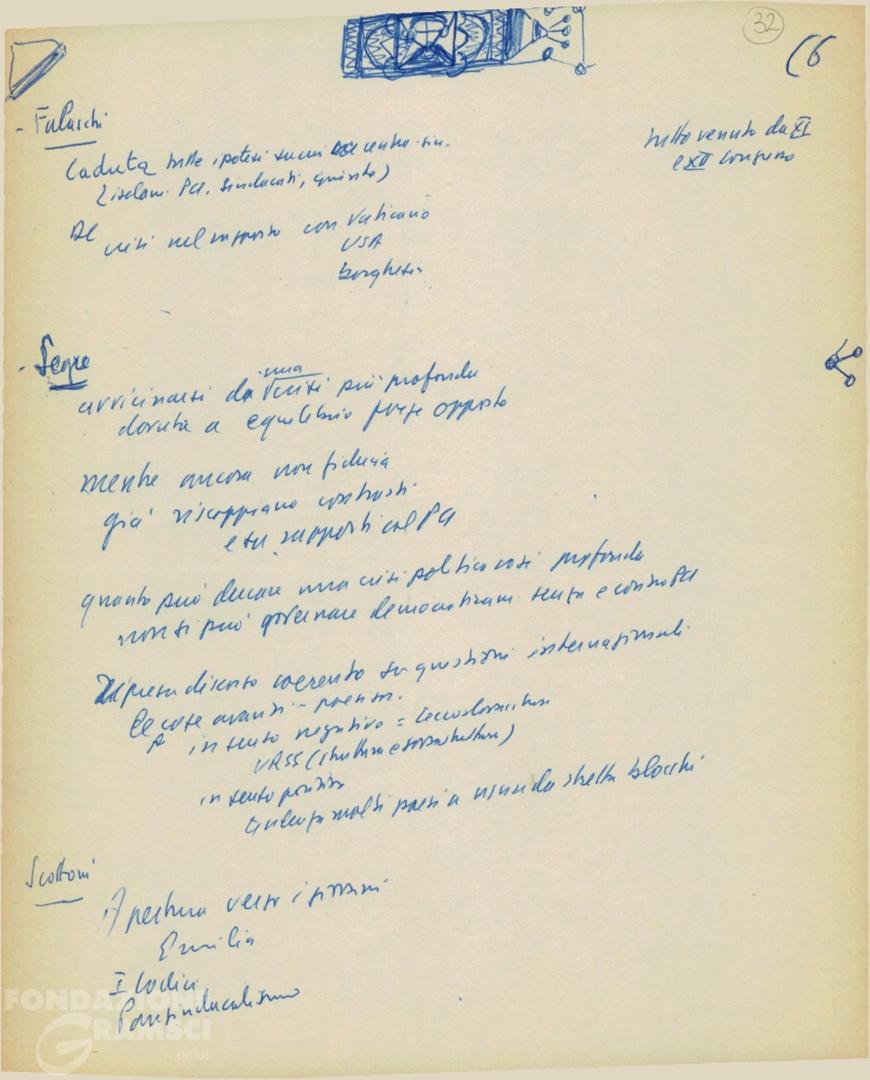 32
(6
- Falaschi
tutto venuto da XI
e XII congresso
Caduta tutte ipotesi centro-sin.
(isolam. PCI, sindacati, )
DC
crisi nel rapporto con Vaticano
USA
borghesia
- Segre
avvicinarsi da una crisi più profonda
dovuta a equilibrio forze opposte
mentre ancora non fiducia
già riscoppiano contrasti
e su rapporti col PCI
quanto può durare una crisi politica così profonda
non si può governare democraticam. senza e contro PCI
Ripresa discorso coerente su questioni internazionali
le cose avanzi -
in senso negativo = Cecoslovacchia
URSS (struttura e sovrastruttura)
in senso positivo
molti paesi a uscire da stretta blocchi
Scottoni
Apertura verso i giovani
Emilia
I Codici
Pansindacalismo
FONDAZIONE
GRAMSCI
onlus